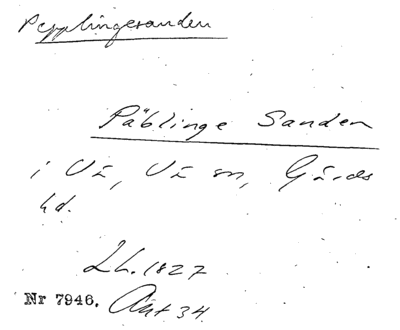 Pepplingesanden
Päblinge Sanden
i Vä, Vä sn, Gärds
hd.
Lh. 1827
Nr 7946. Akt 34